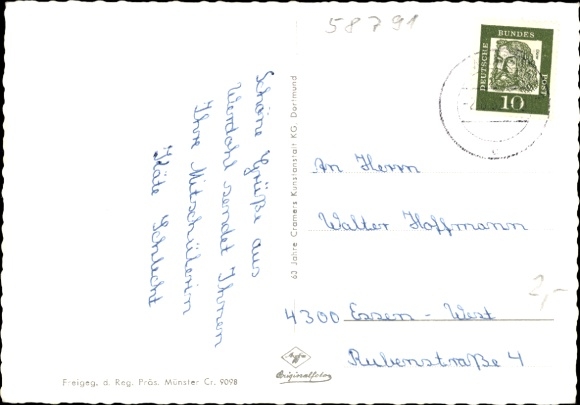 58791
DEUTSCHE
BUNDES
POST
10
Schöne Grüße aus
Werdohl sendet Ihnen
Ihre Mitschülerin
Käte Schlecht
63 Jahre Cramers Kunstanstalt KG, Dortmund
An Herrn
Walter Hoffmann
2,-
4300 Essen - West
Rubenstraße 4
Originalfoto
Freigeg. d. Reg. Präs. Münster Cr. 9098